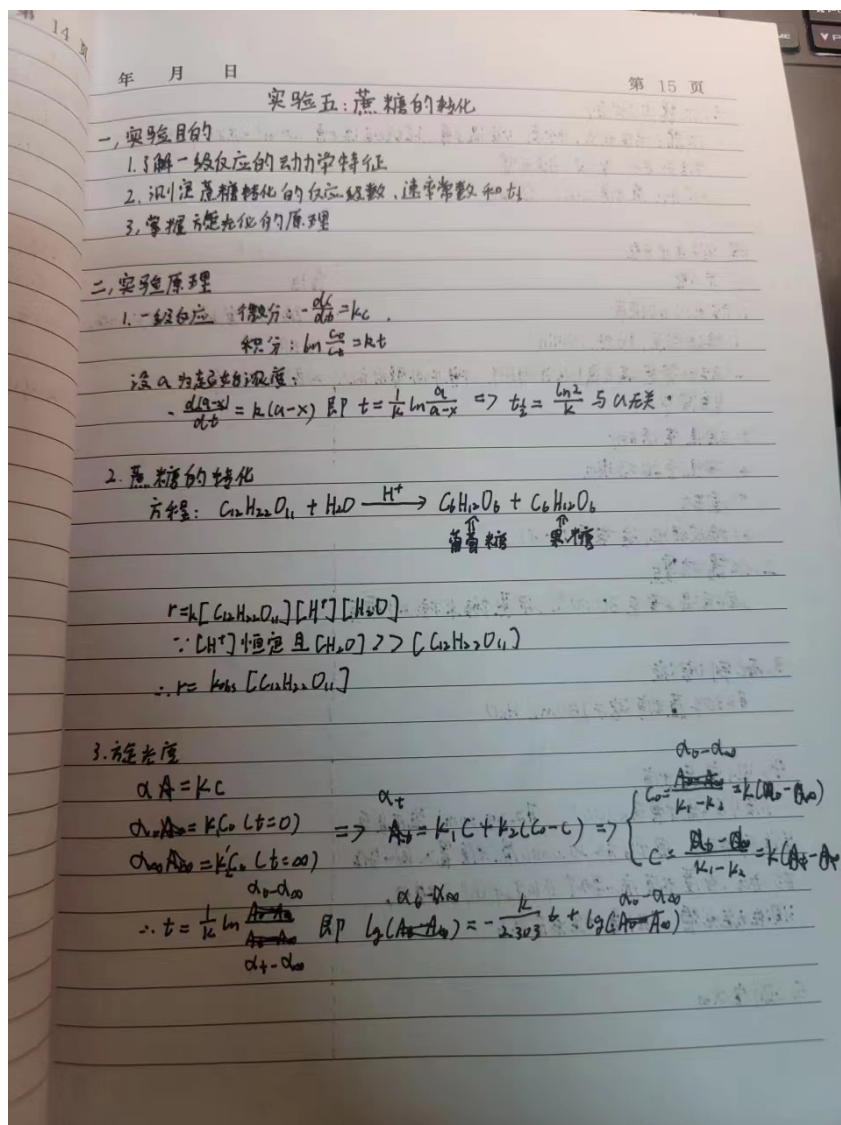 第 14 页
年 月 日
第 15 页
实验五:蔗糖的转化
一,实验目的
1.了解一级反应的动力学特征
2.测定蔗糖转化的反应级数、速率常数和t½
3,掌握旋光化的原理
二,实验原理
1.一级反应 微分:-dc/dt=kc.
积分:ln c₀/cₜ=kt
设a为起始浓度:
-d(a-x)/dt=k(a-x) 即 t=1/k ln a/(a-x) => t½=ln2/k 与a无关.
2.蔗糖的转化
方程:C₁₂H₂₂O₁₁+H₂O —H⁺→ C₆H₁₂O₆+C₆H₁₂O₆
葡萄糖 果糖
r=k[C₁₂H₂₂O₁₁][H⁺][H₂O]
∵[H⁺]恒定且[H₂O]>>[C₁₂H₂₂O₁₁]
∴r=kobs[C₁₂H₂₂O₁₁]
3.旋光度
α A=KC
α₀=K₁C₀(t=0) => αₜ=K₁C+K₂(C₀-C) => { C₀=(α₀-α∞)/(K₁-K₂)=K(α₀-α∞)
α∞=K₂C₀(t=∞) C=(αₜ-α∞)/(K₁-K₂)=K(αₜ-α∞)
∴t=1/k ln (α₀-α∞)/(αₜ-α∞) 即 lg(αₜ-α∞)=-k/2.303 t+lg(α₀-α∞)